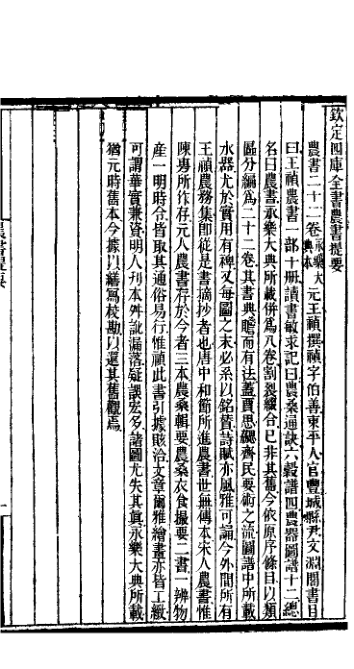 欽定四庫全書農書提要
農書二十二卷永樂大典本元王禎撰禎字伯善東平人官豐城縣尹文淵閣書目
曰王禎農書一部十冊讀書敏求記曰農桑通訣六穀譜四農器圖譜十二總
名曰農書永樂大典所載併為八卷割裂綴合已非其舊今依原序條目以類
區分編為二十二卷其書典贍而有法蓋賈思勰齊民要術之流圖譜中所載
水器尤於實用有裨又每圖之末必系以銘贊詩賦亦風雅可誦今外間所有
王禎農務集即從是書摘抄者也唐中和節所進農書世無傳本宋人農書惟
陳旉所作存元人農書存於今者三本農桑輯要農桑衣食撮要二書一辨物
產一明時令皆取其通俗易行惟禎此書引據賅洽文章爾雅繪畫亦皆工緻
可謂華實兼資明人刊本舛訛漏落疑誤宏多諸圖尤失其真永樂大典所載
猶元時舊本今據以繕寫校勘以還其舊觀焉